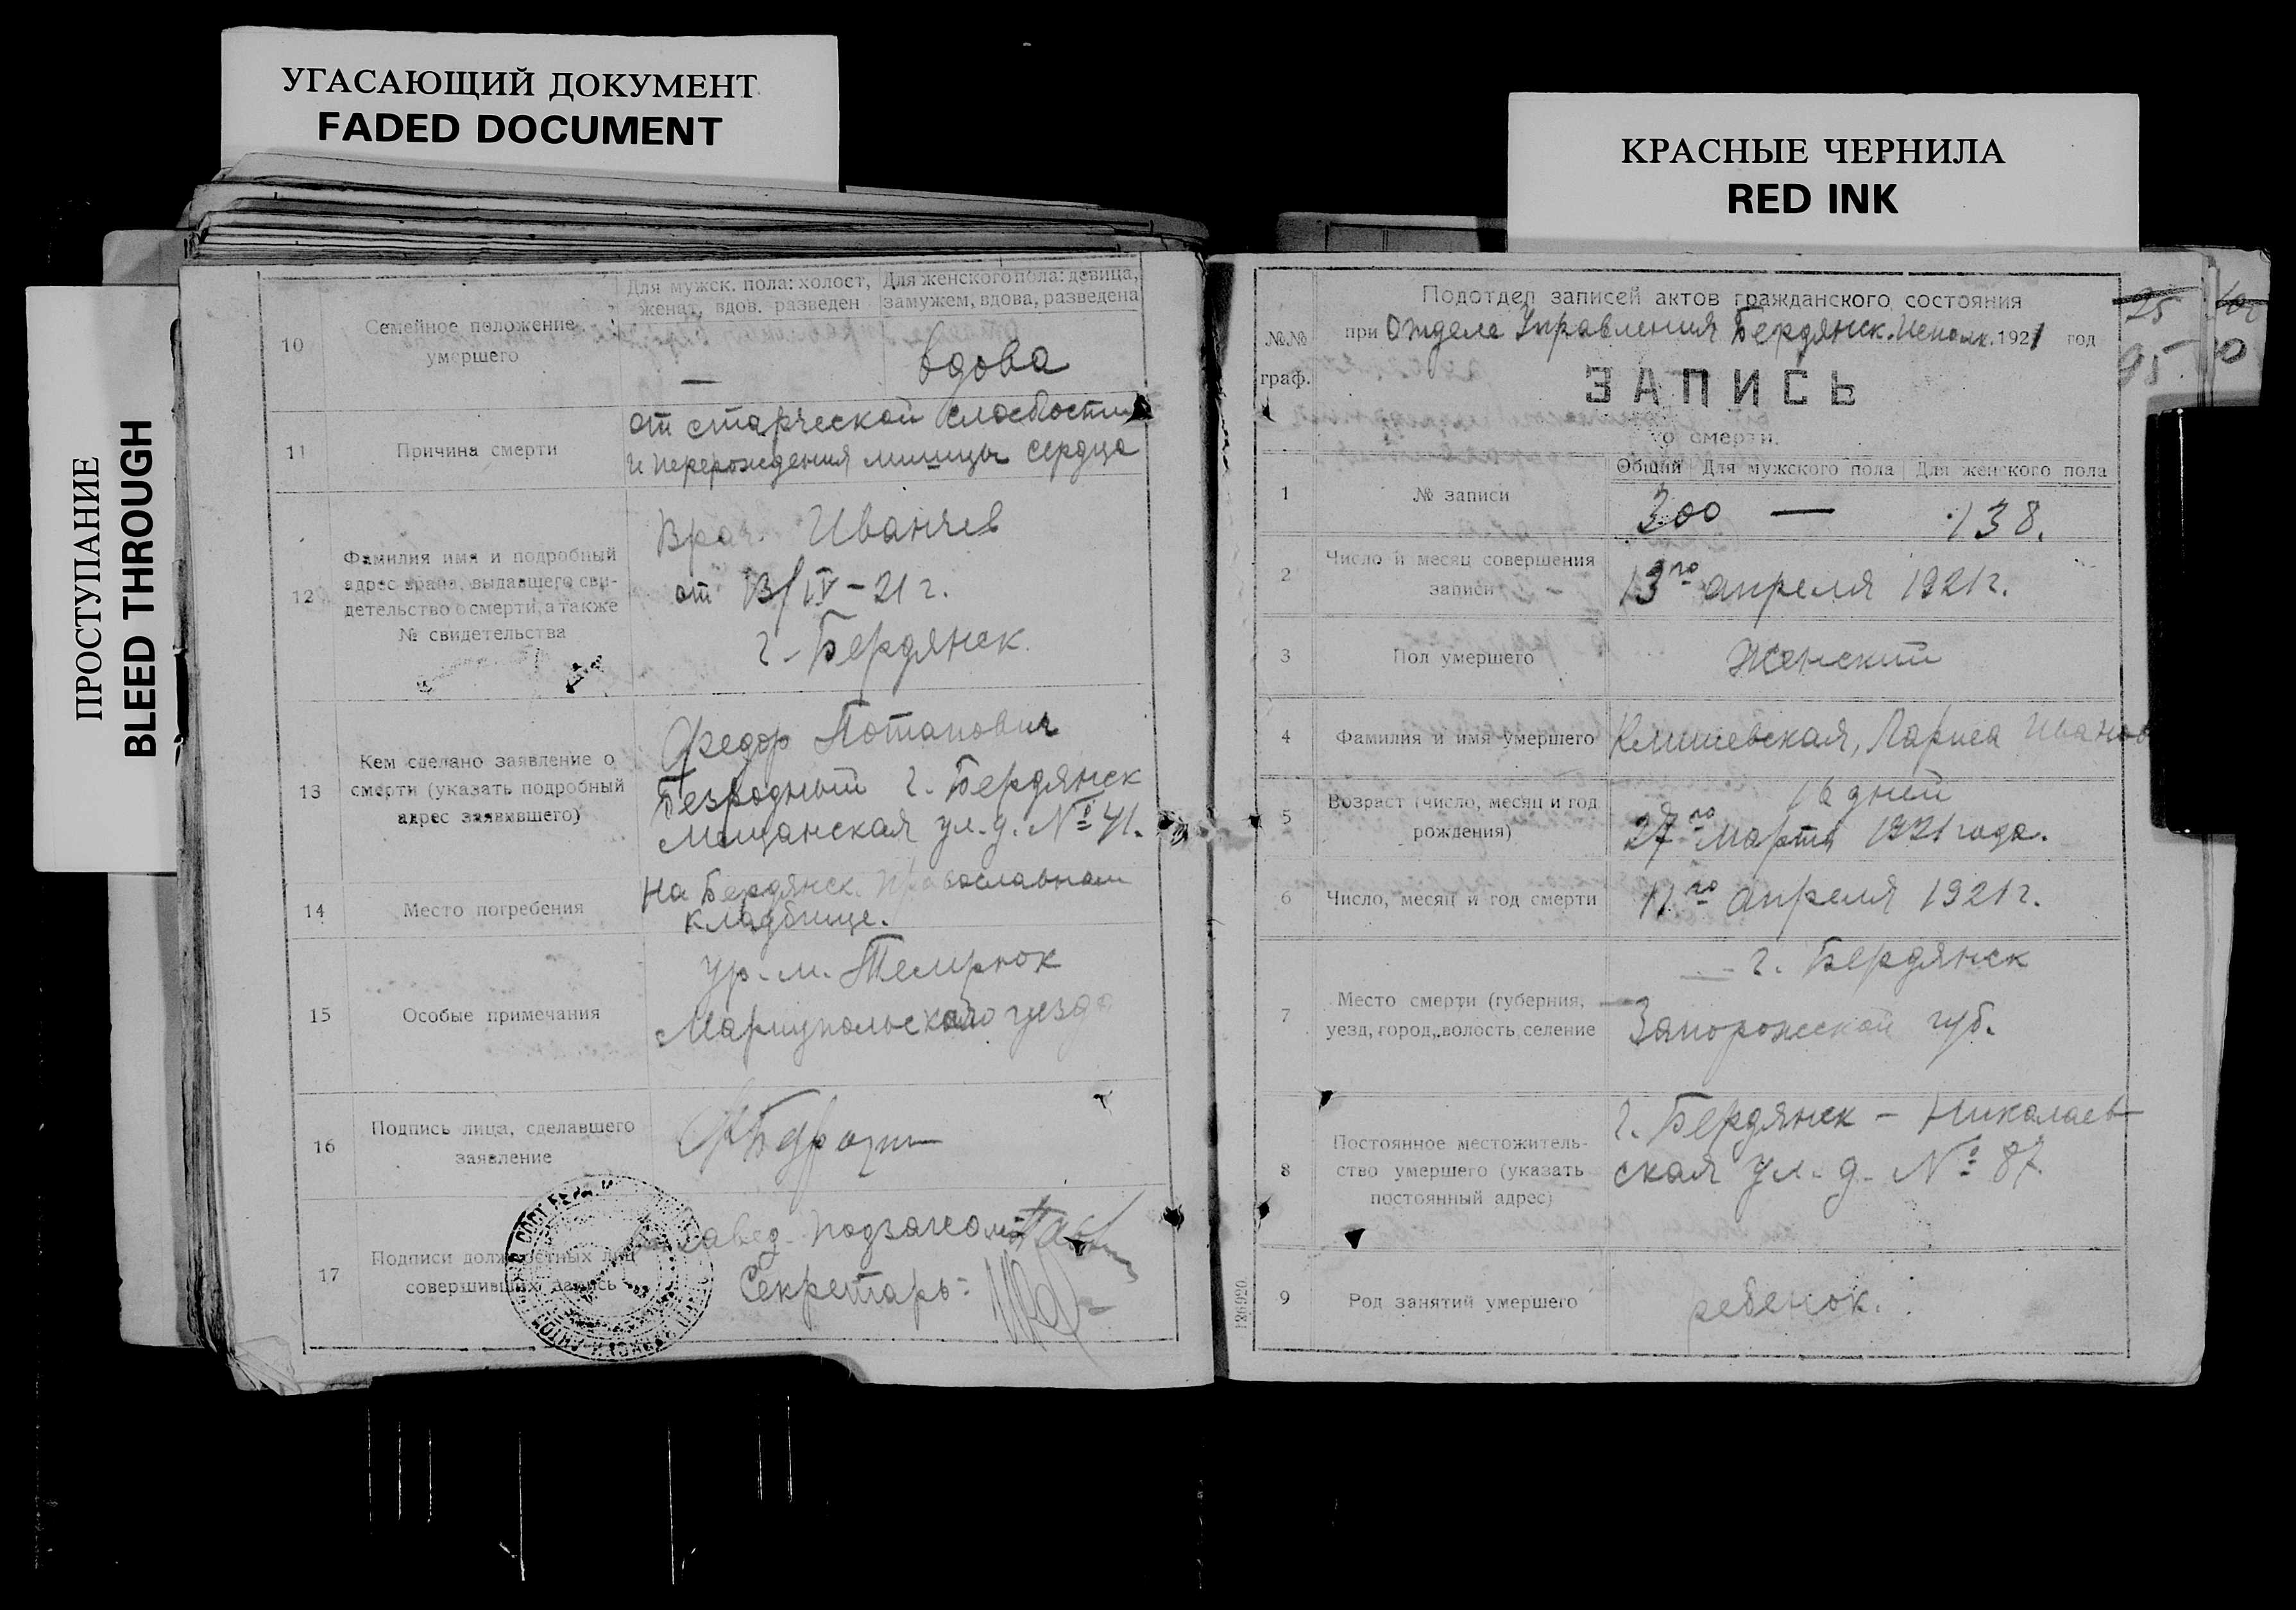 УГАСАЮЩИЙ ДОКУМЕНТ
FADED DOCUMENT
ПРОСТУПАНИЕ
BLEED THROUGH
10
Семейное положение
умершего
Для мужск. пола: холост,
женат, вдов. разведен
Для женского пола: девица,
замужем, вдова, разведена
—
вдова
11
Причина смерти
от старческой слабости
и перерождения мышцы сердца
12
Фамилия имя и подробный
адрес врача, выдавшего сви-
детельство о смерти, а также
№ свидетельства
Врач Иванчев
от 13/IV – 21 г.
г. Бердянск.
13
Кем сделано заявление о
смерти (указать подробный
адрес заявившего)
Федор Потапович
Безродный г. Бердянск
Мещанская ул. д. № 41.
14
Место погребения
На Бердянск. Православном
кладбище.
15
Особые примечания
ур. м. Темрюк
Мариупольского уезда
16
Подпись лица, сделавшего
заявление
17
Подписи должностных лиц
совершивших запись
Завед. Подзагсом
Секретарь:
КРАСНЫЕ ЧЕРНИЛА
RED INK
№№
граф.
Подотдел записей актов гражданского состояния
при Отделе Управления Бердянск. Исполк. 1921 год
ЗАПИСЬ
о смерти.
1
№ записи
Общий
Для мужского пола
Для женского пола
300 — 138.
2
Число и месяц совершения
записи
13го апреля 1921 г.
3
Пол умершего
Женский
4
Фамилия и имя умершего
Клишевская, Лариса Иванов
5
Возраст (число, месяц и год
рождения)
16 дней
27го марта 1921 года.
6
Число, месяц и год смерти
11го апреля 1921 г.
7
Место смерти (губерния,
уезд, город, волость, селение
г. Бердянск
Запорожской губ.
8
Постоянное местожитель-
ство умершего (указать
постоянный адрес)
г. Бердянск – Николаев-
ская ул. д. № 87.
9
Род занятий умершего
ребенок.
136920